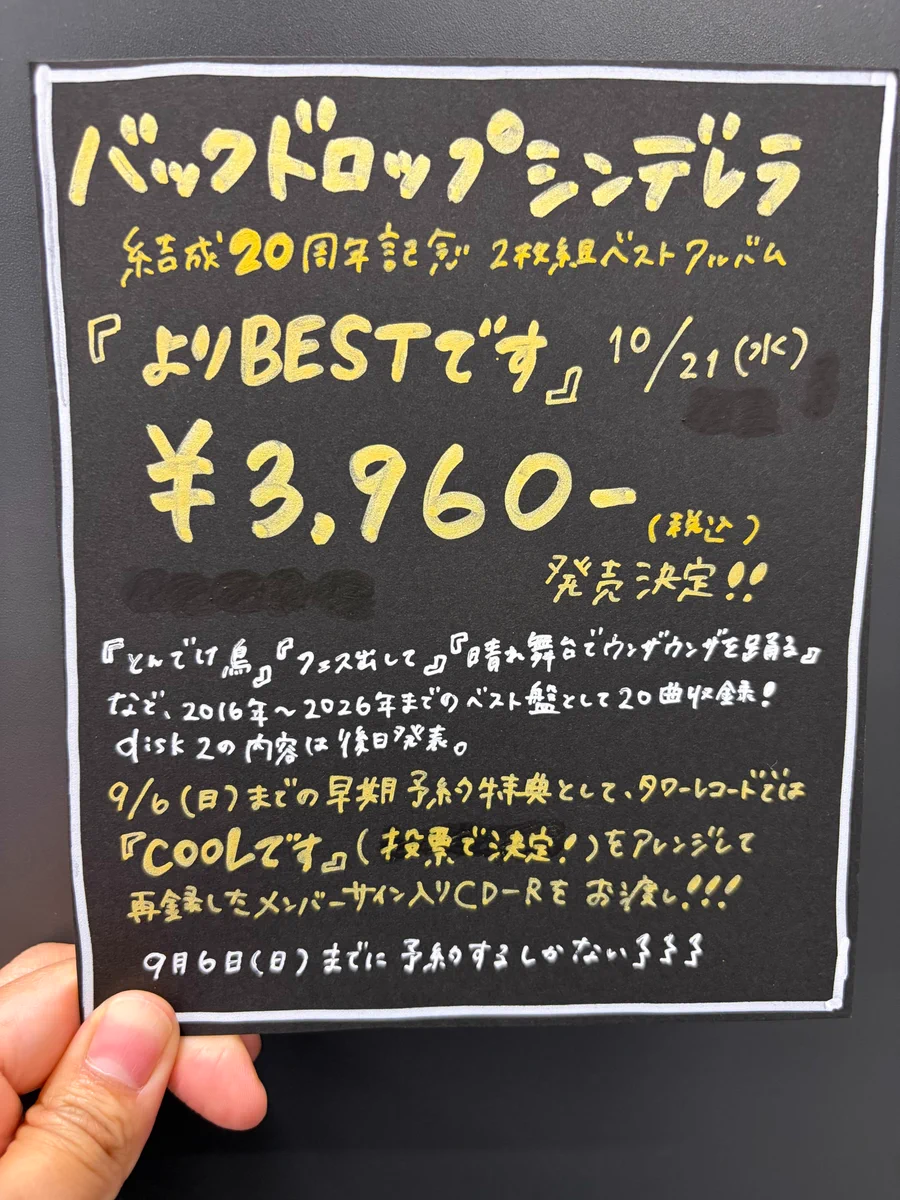 バックドロップシンデレラ
結成20周年記念 2枚組ベストアルバム
『よりBESTです』 10/21(水)
¥3,960-
(税込)
発売決定!!
『とんでけ鳥』『フェス出して』『晴れ舞台でウンザウンザを踊る』
など、2016年～2026年までのベスト盤として20曲収録!
disk 2の内容は後日発表。
9/6(日)までの早期予約特典として、タワーレコードでは
『COOLです』(投票で決定!)をアレンジして
再録したメンバーサイン入りCD-Rをお渡し!!!
9月6日(日)までに予約するしかない